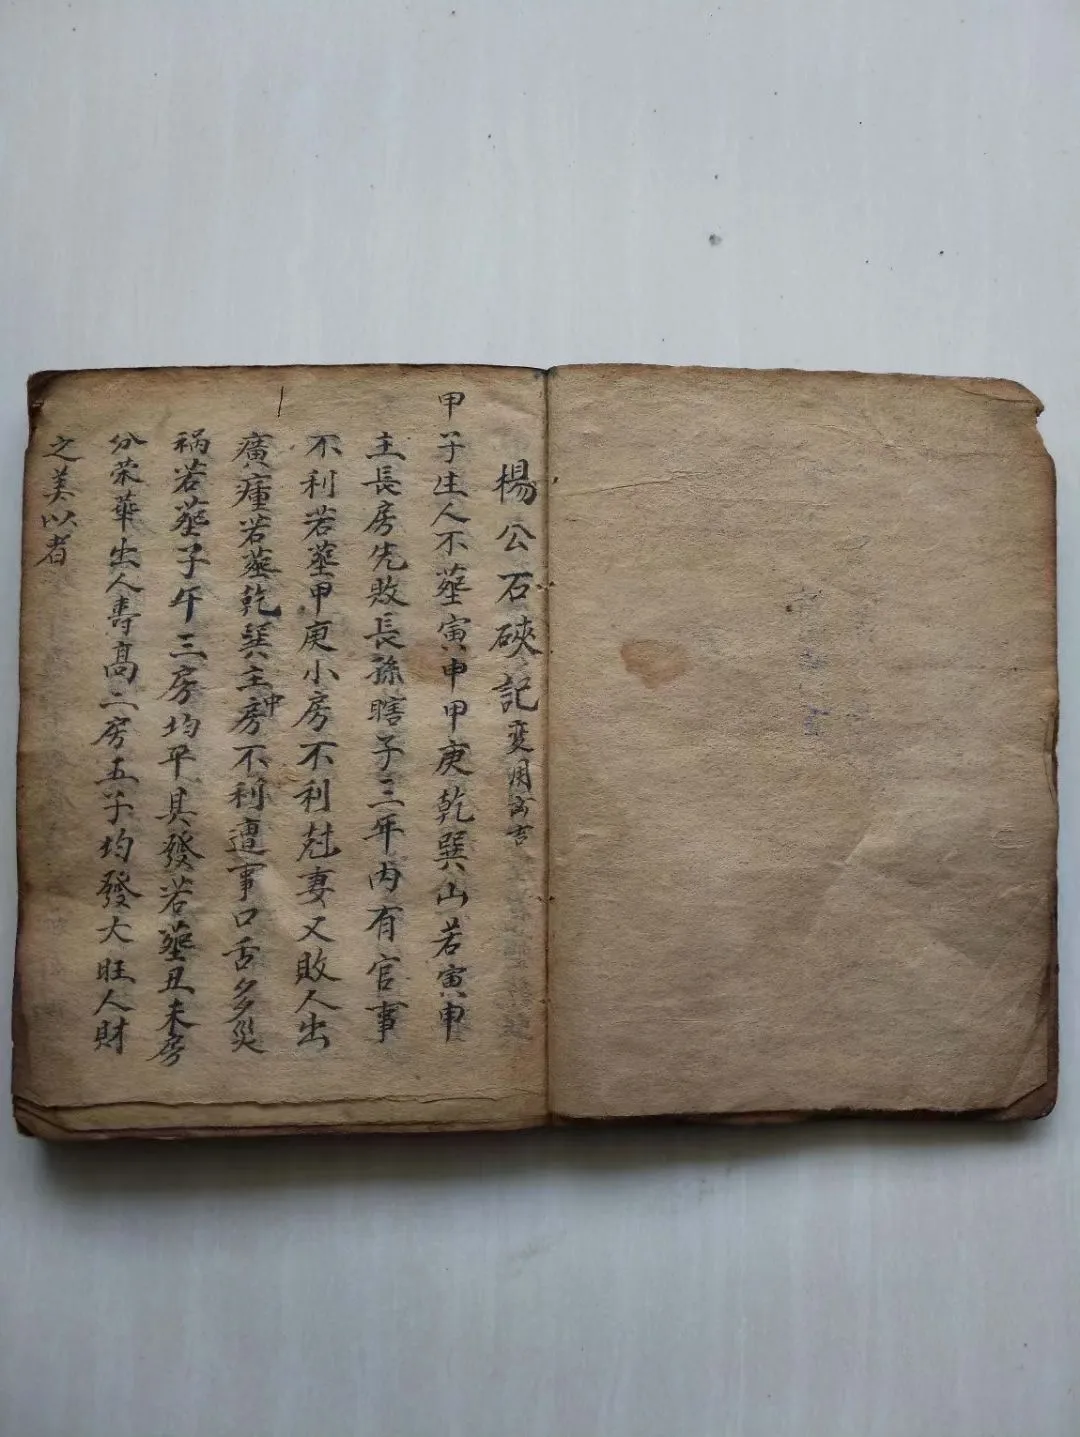 楊公石硤記 变用
甲子生人不塟寅申甲庚乾巽山若寅申
主長房先敗長孫瞎子三年內有官事
不利若塟甲庚小房不利尅妻又敗人出
廣瘇若塟乾巽主中房不利遭事口舌多災
祸若塟子午三房均平具發若塟丑未房
分荣華出人壽高二房五子均發大旺人財
之美以者